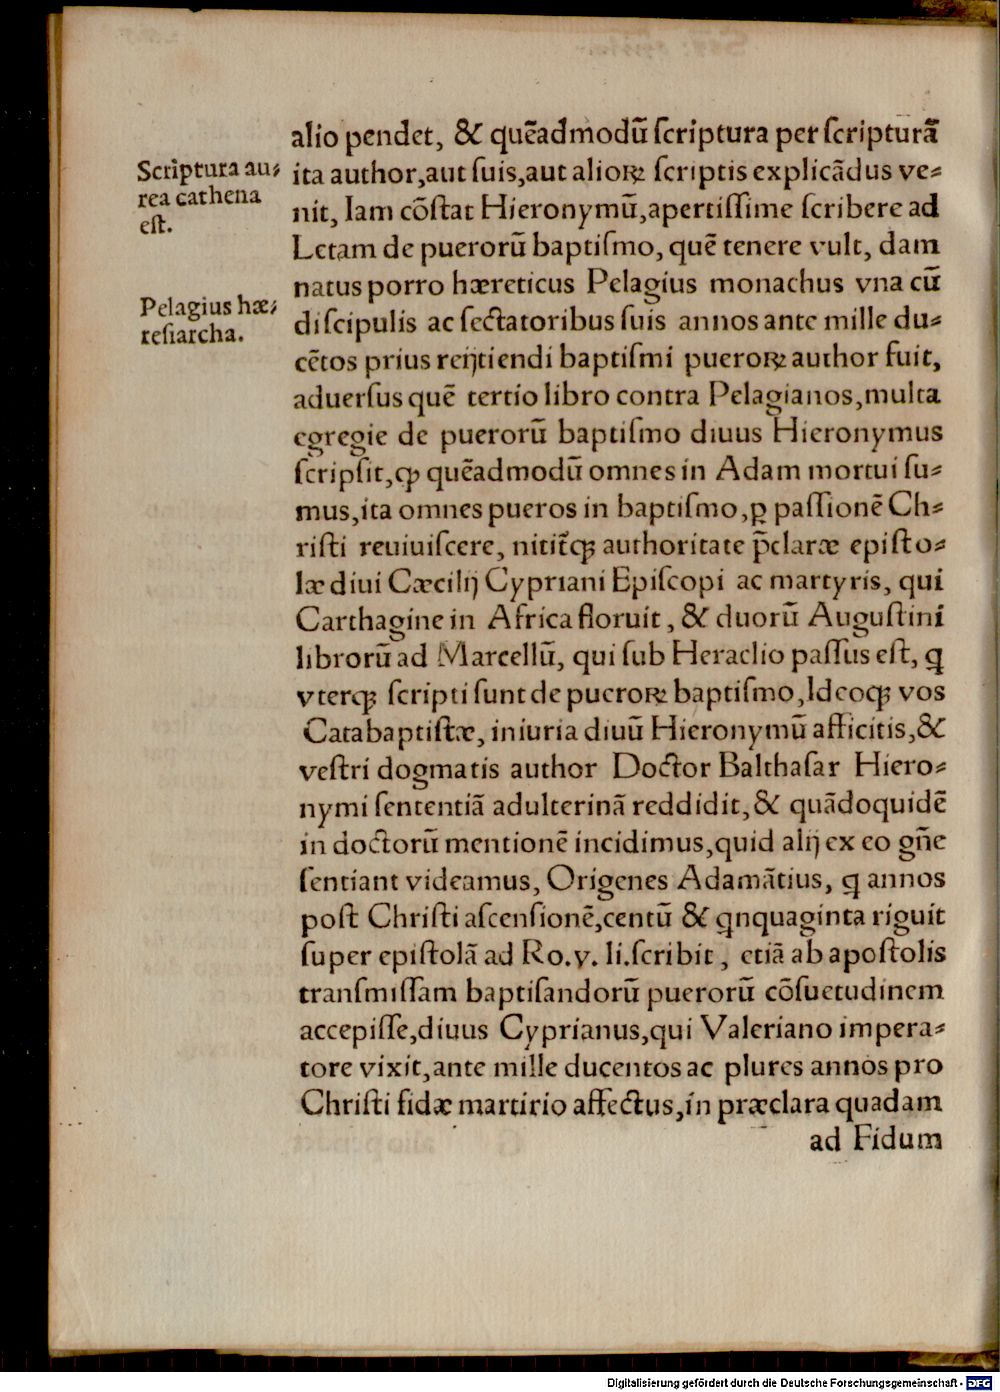 alio pendet, & quēadmodū ſcriptura per ſcripturā
Scriptura au⸗
rea cathena
eſt.
ita author,aut ſuis,aut alioꝝ ſcriptis explicādus ve⸗
nit, Iam cōſtat Hieronymū,apertiſſime ſcribere ad
Letam de puerorū baptiſmo, quē tenere vult, dam
natus porro hæreticus Pelagius monachus vna cū
Pelagius hæ⸗
reſiarcha.
diſcipulis ac ſectatoribus ſuis annos ante mille du⸗
cētos prius reijtiendi baptiſmi pueroꝝ author fuit,
aduerſus quē tertio libro contra Pelagianos,multa
egregie de puerorū baptiſmo diuus Hieronymus
ſcripſit,ꝙ quēadmodū omnes in Adam mortui ſu⸗
mus,ita omnes pueros in baptiſmo,ꝑ paſſionē Ch⸗
riſti reuiuiſcere, nitit᷑qꝫ authoritate p̄claræ epiſto⸗
læ diui Cæcilij Cypriani Epiſcopi ac martyris, qui
Carthagine in Africa floruit, & duorū Auguſtini
librorū ad Marcellū, qui ſub Heraclio paſſus eſt, ꝗ
vterqꝫ ſcripti ſunt de pueroꝝ baptiſmo,Ideoqꝫ vos
Catabaptiſtæ, iniuria diuū Hieronymū afficitis,&
veſtri dogmatis author Doctor Balthaſar Hiero⸗
nymi ſententiā adulterinā reddidit,& quādoquidē
in doctorū mentionē incidimus,quid alij ex eo gn̄e
ſentiant videamus, Origenes Adamātius, ꝗ annos
poſt Chriſti aſcenſionē,centū & ꝗnquaginta riguit
ſuper epiſtolā ad Ro.v. li.ſcribit, etiā ab apoſtolis
tranſmiſſam baptiſandorū puerorū cōſuetudinem
accepiſſe,diuus Cyprianus,qui Valeriano impera⸗
tore vixit,ante mille ducentos ac plures annos pro
Chriſti fidæ martirio affectus,in præclara quadam
ad Fidum
Digitalisierung gefördert durch die Deutsche Forschungsgemeinschaft - DFG